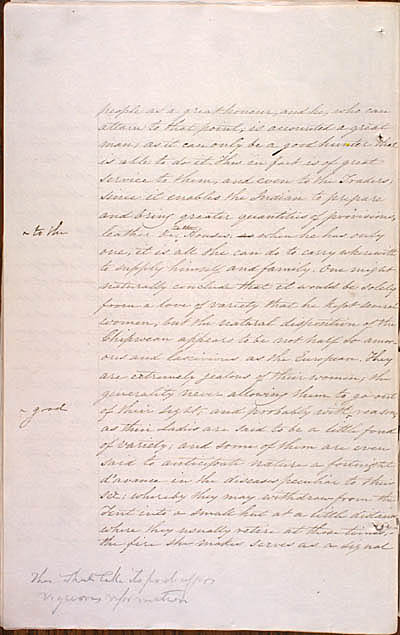 people as a great honour, and he, who can
attain to that point, is accounted a great
man; as it can only be a good hunter that
is able to do it. This in fact is of great
service to them, and even to the Traders;
since it enables the Indian to prepare
and bring greater quantities of provisions,
~ to the
leather &c. House, when he has only
one, it is all she can do to carry wherewith
to supply himself and family. One might
naturally conclude that it would be solely
from a love of variety that he kept several
women, but the natural disposition of the
Chipwean appears to be not half so amor-
ous and lascivious as the European. They
are extremely jealous of their women, the
generality never allowing them to go out
~ good
of their sight, and probably with reason,
as their Ladies are said to be a little fond
of variety; and some of them are even
said to anticipate nature a fortnight
d'avance in the disease peculiar to their
sex; whereby they may withdraw from the
Tent into a small hut at a little distance
where they usually retire at those times.
the fire she makes serves as a signal
this
take its
vigorous information